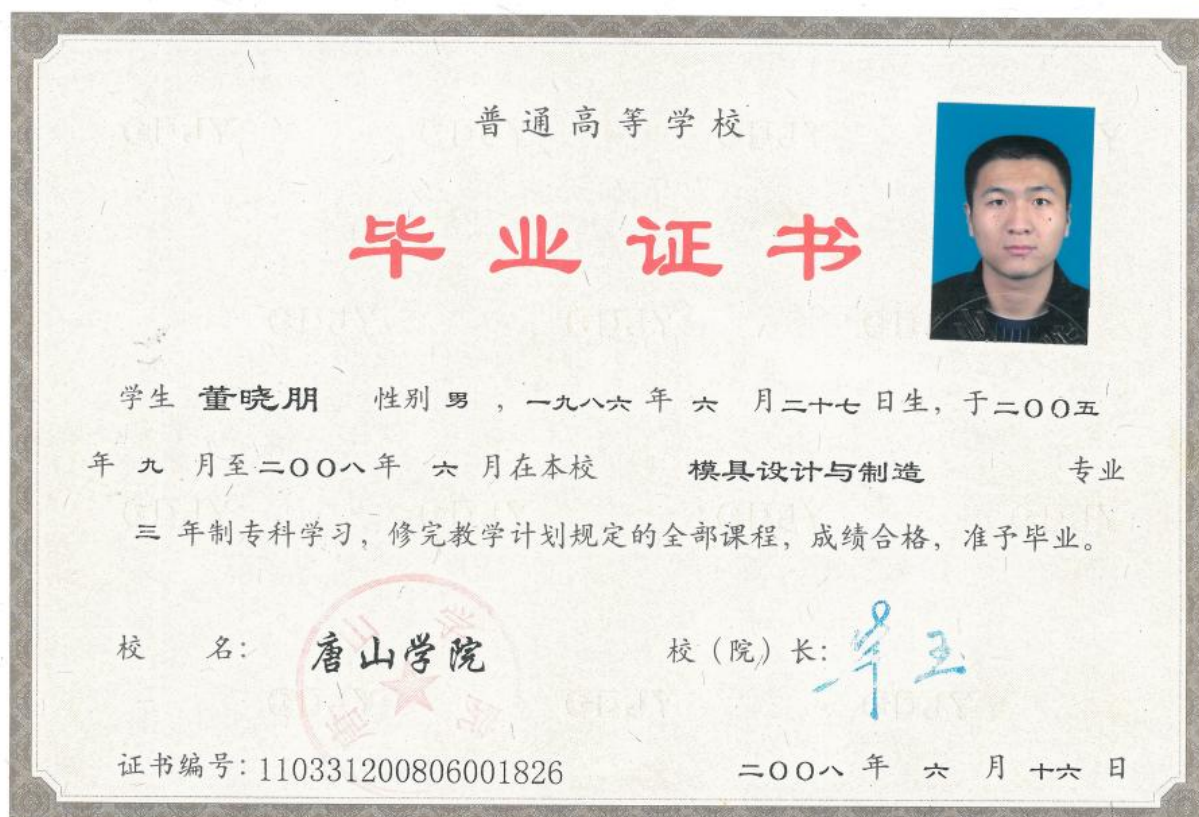 普通高等学校
毕业证书
学生 董晓朋 性别 男 , 一九八六 年 六 月 二十七 日生, 于二〇〇五
年 九 月至二〇〇八年 六 月在本校 模具设计与制造 专业
三 年制专科学习, 修完教学计划规定的全部课程, 成绩合格, 准予毕业。
校 名: 唐山学院 校(院)长:
唐山学院
证书编号: 110331200806001826 二〇〇八 年 六 月 十六 日